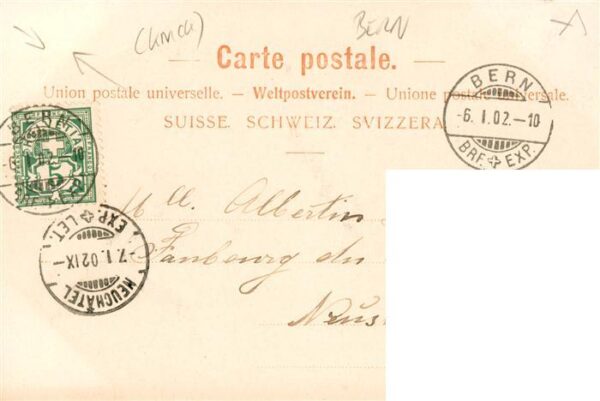 BERN
— Carte postale. —
Union postale universelle. — Weltpostverein. — Unione postale universale.
SUISSE. SCHWEIZ. SVIZZERA
BERN
-6. I. 02.-10
BRF. EXP.
BERN
5
Mll. Albertin
Faubourg du
EXP. LET.
7. I. 02 IX-
NEUCHÂTEL